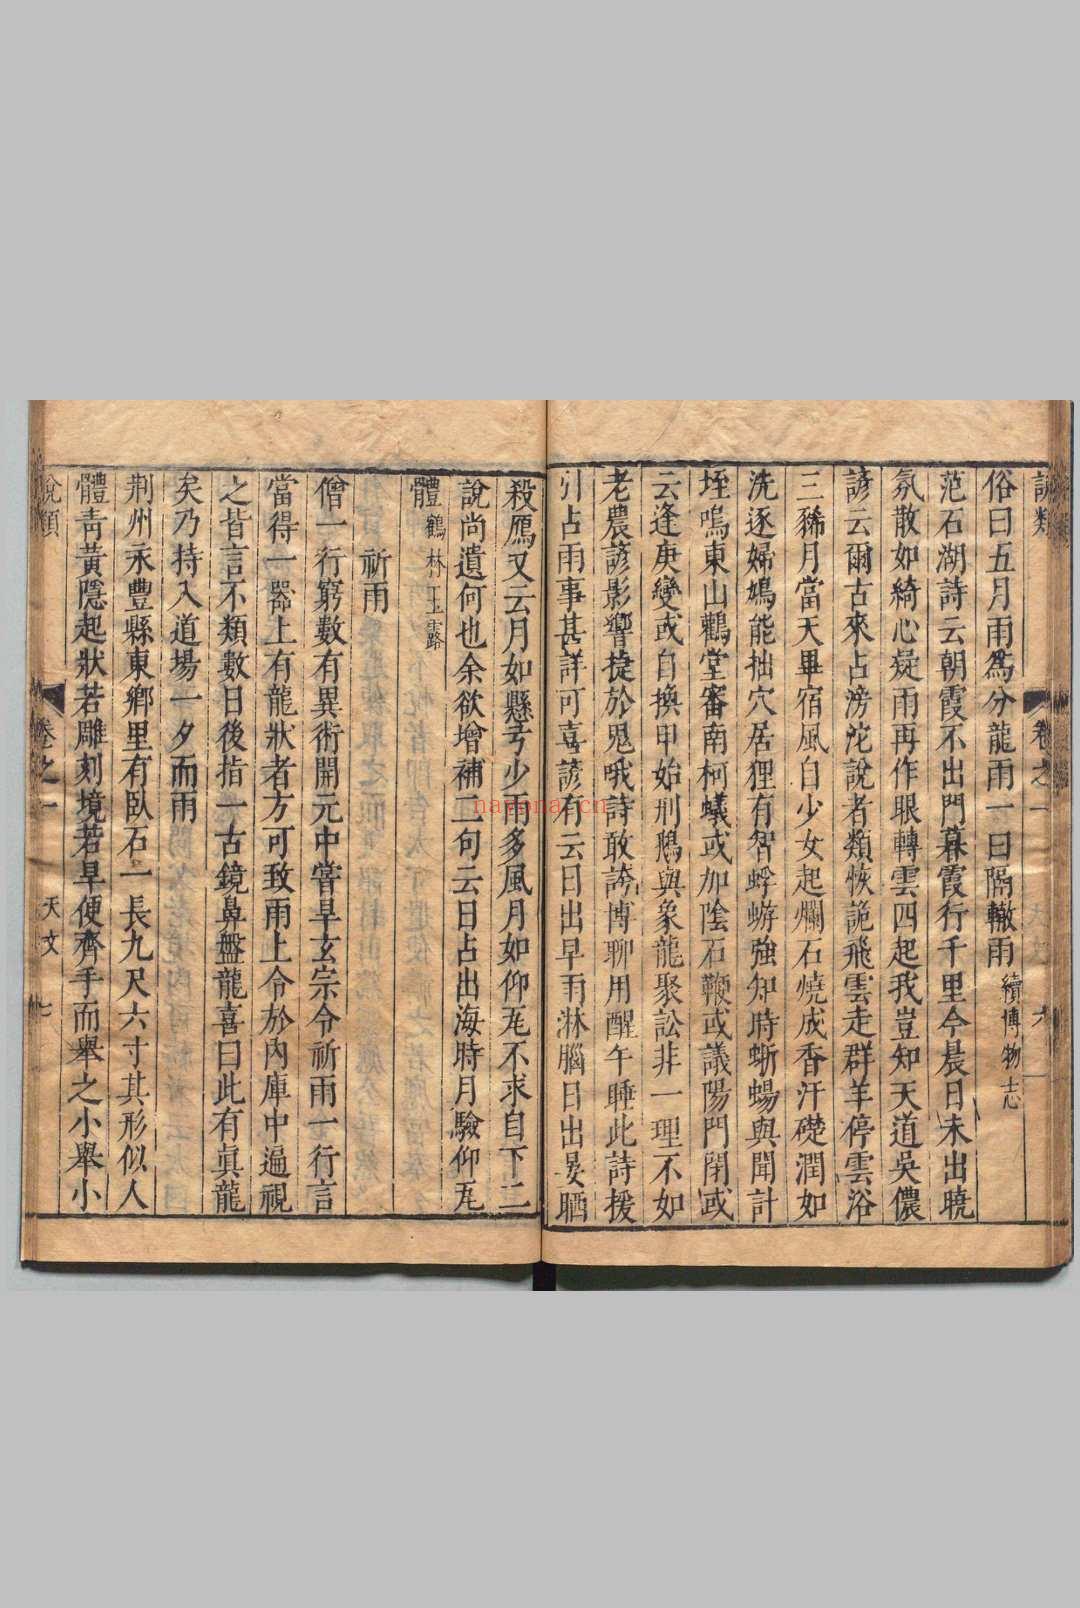 說類 卷之一 六
俗曰五月雨爲分龍雨一曰隔轍雨續博物志
范石湖詩云朝霞不出門暮霞行千里今晨日未出曉
氛散如綺心疑雨再作眼轉雲四起我豈知天道吳儂
諺云爾古來占滂沱說者類恢詭飛雲走群羊停雲浴
三豨月當天畢宿風自少女起爛石燒成香汗礎潤如
洗逐婦鳩能拙穴居狸有智蜉蝣強知時蜥蜴與聞計
垤鳴東山鸛堂審南柯蟻或加陰石鞭或議陽門閉或
云逢庚變或自換甲始刑鵝與象龍聚訟非一理不如
老農諺影響捷於鬼哦詩敢誇博聊用醒午睡此詩援
引占雨事甚詳可喜諺有云日出早雨淋腦日出晏曬
殺鴈又云月如懸弓少雨多風月如仰瓦不求自下二
說尚遺何也余欲增補二句云日占出海時月驗仰瓦
體鶴林玉露
祈雨
僧一行窮數有異術開元中嘗旱玄宗令祈雨一行言
當得一器上有龍狀者方可致雨上令於內庫中遍視
之皆言不類數日後指一古鏡鼻盤龍喜曰此有眞龍
矣乃持入道場一夕而雨
荆州永豐縣東鄉里有臥石一長九尺六寸其形似人
體青黃隱起狀若雕刻境若旱便齊手而舉之小舉小
說類 卷之一 天文 七
navona.cn